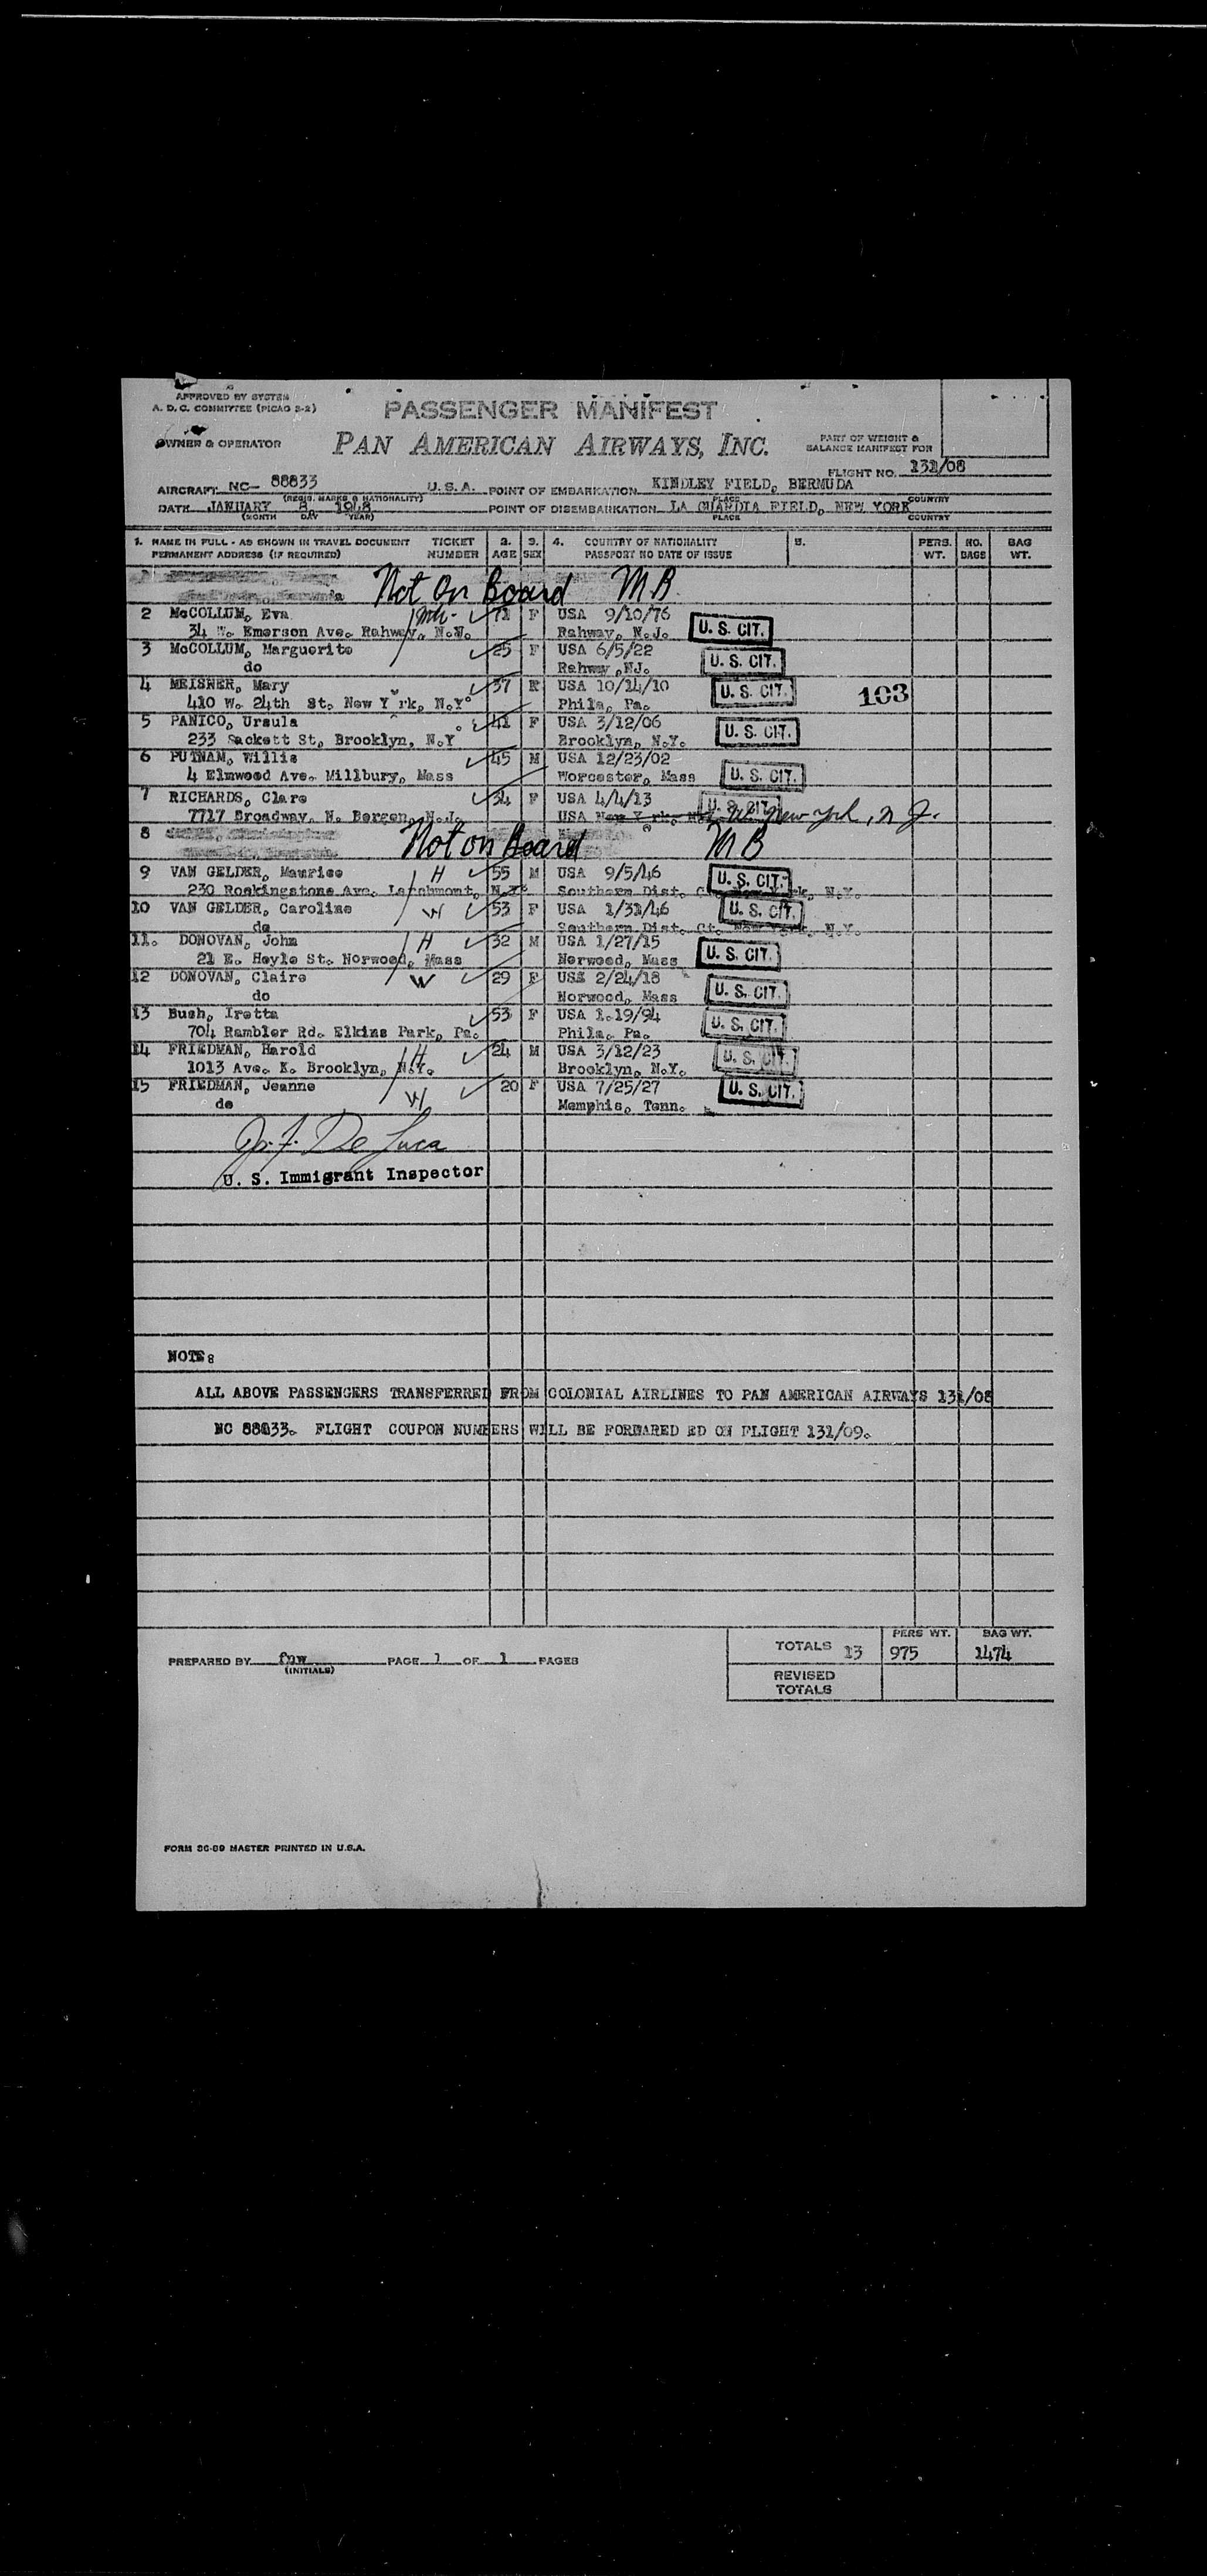 APPROVED BY SYSTEM
A. D. C. COMMITTEE (PICAO 2-2)
PASSENGER MANIFEST
OWNER & OPERATOR
PAN AMERICAN AIRWAYS, INC.
PART OF WEIGHT &
BALANCE MANIFEST FOR
FLIGHT NO. 131/08
AIRCRAFT NC- 88833 U.S.A. POINT OF EMBARKATION KINDLEY FIELD, BERMUDA
(REGIS. MARKS & NATIONALITY) PLACE COUNTRY
DATE JANUARY 8, 1948 POINT OF DISEMBARKATION LA GUARDIA FIELD, NEW YORK
(MONTH DAY YEAR) PLACE COUNTRY
1. NAME IN FULL - AS SHOWN IN TRAVEL DOCUMENT TICKET 2. 3. 4. COUNTRY OF NATIONALITY 5. PERS. NO. BAG
PERMANENT ADDRESS (IF REQUIRED) NUMBER AGE SEX PASSPORT NO DATE OF ISSUE WT. BAGS WT.
Not On Board MB
2 McCOLLUM, Eva 71 F USA 9/10/76
34 W. Emerson Ave. Rahway, N.J. Rahway, N.J. U. S. CIT.
3 McCOLLUM, Marguerite 25 F USA 6/5/22
do Rahway, NJ. U. S. CIT.
4 MEISNER, Mary 37 F USA 10/14/10
410 W. 24th St. New York, N.Y. Phila, Pa. U. S. CIT. 103
5 PANICO, Ursula 41 F USA 3/12/06
233 Sackett St, Brooklyn, N.Y Brooklyn, N.Y. U. S. CIT.
6 PUTNAM, Willis 45 M USA 12/23/02
4 Elmwood Ave. Millbury, Mass Worcester, Mass U. S. CIT.
7 RICHARDS, Clare 34 F USA 4/4/13
7717 Broadway, N. Bergen, N.J. USA New York, U. S. CIT. W. New York, N.J.
8 Not on Board MB
9 VAN GELDER, Maurice H 55 M USA 9/5/46
230 Rockingstone Ave. Larchmont, N.Y. Southern Dist. Ct. New York, N.Y. U. S. CIT.
10 VAN GELDER, Caroline W 53 F USA 1/31/46
do Southern Dist. Ct. New York, N.Y. U. S. CIT.
11. DONOVAN, John H 32 M USA 1/27/15
21 E. Hoyle St. Norwood, Mass Norwood, Mass U. S. CIT.
12 DONOVAN, Claire W 29 F USA 2/24/18
do Norwood, Mass U. S. CIT.
13 Bush, Iretta 53 F USA 1.19/94
704 Rambler Rd. Elkins Park, Pa. Phila. Pa. U. S. CIT.
14 FRIEDMAN, Harold H 24 M USA 3/12/23
1013 Ave. K. Brooklyn, N.Y. Brooklyn, N.Y. U. S. CIT.
15 FRIEDMAN, Jeanne W 20 F USA 7/25/27
do Memphis, Tenn. U. S. CIT.
De Luca
U. S. Immigrant Inspector
NOTE:
ALL ABOVE PASSENGERS TRANSFERRED FROM COLONIAL AIRLINES TO PAN AMERICAN AIRWAYS 131/08
NC 88833. FLIGHT COUPON NUMBERS WILL BE FORWARED ED ON FLIGHT 131/09.
PREPARED BY PAGE 1 OF 1 PAGES
(INITIALS)
PERS WT. BAG WT.
TOTALS 13 975 1474
REVISED
TOTALS
FORM SC-89 MASTER PRINTED IN U.S.A.